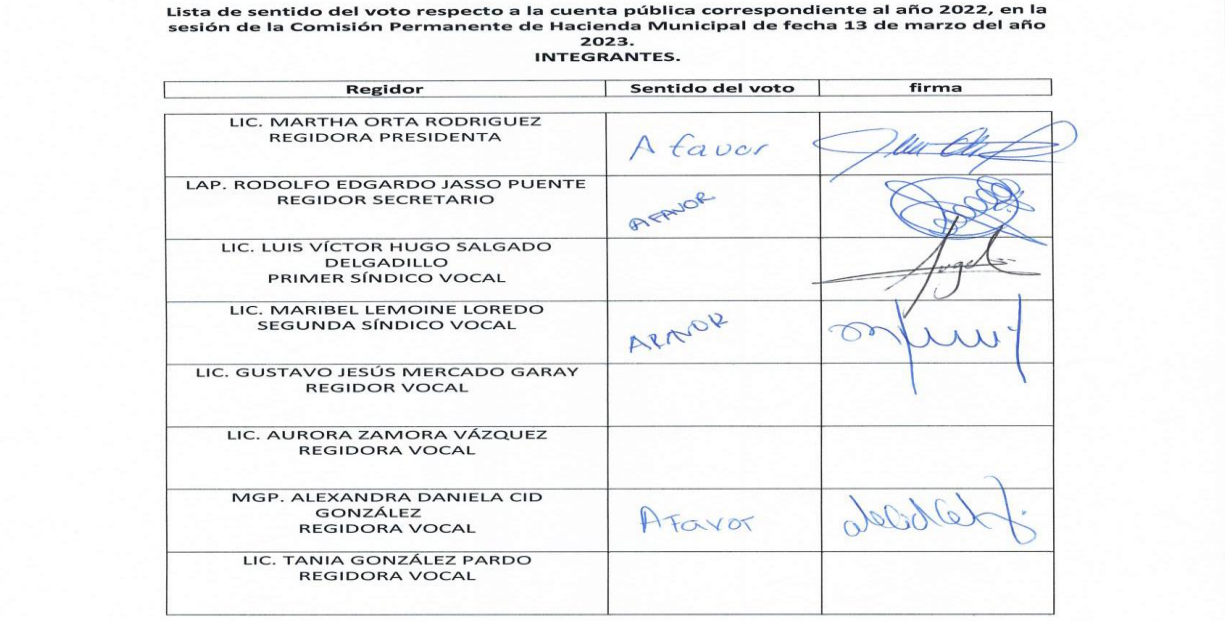 Lista de sentido del voto respecto a la cuenta pública correspondiente al año 2022, en la
sesión de la Comisión Permanente de Hacienda Municipal de fecha 13 de marzo del año
2023.
INTEGRANTES.
Regidor Sentido del voto firma
LIC. MARTHA ORTA RODRIGUEZ
REGIDORA PRESIDENTA
A favor
LAP. RODOLFO EDGARDO JASSO PUENTE
REGIDOR SECRETARIO
AFAVOR
LIC. LUIS VÍCTOR HUGO SALGADO
DELGADILLO
PRIMER SÍNDICO VOCAL
LIC. MARIBEL LEMOINE LOREDO
SEGUNDA SÍNDICO VOCAL
AFAVOR
LIC. GUSTAVO JESÚS MERCADO GARAY
REGIDOR VOCAL
LIC. AURORA ZAMORA VÁZQUEZ
REGIDORA VOCAL
MGP. ALEXANDRA DANIELA CID
GONZÁLEZ
REGIDORA VOCAL
A Favor
LIC. TANIA GONZÁLEZ PARDO
REGIDORA VOCAL